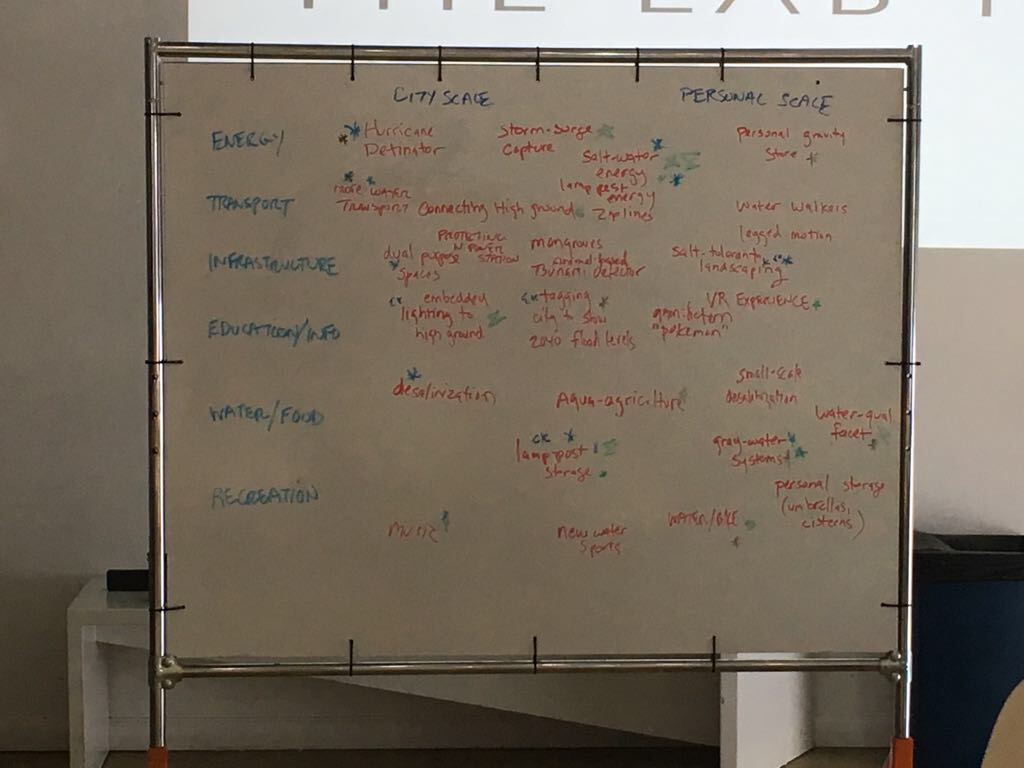 THE LAB
CITY SCALE
PERSONAL SCALE
ENERGY
Hurricane
Detinator
Storm-surge
Capture
Salt-water
energy
lamppost
energy
Personal gravity
Store
TRANSPORT
more WATER
TRANSPORT
Connecting High ground
Ziplines
Water Walkers
legged motion
INFRASTRUCTURE
dual purpose
Spaces
PROTECTING
POWER
STATION
mangroves
animal-based
Tsunami Detector
Salt-tolerant
landscaping
EDUCATION/INFO
embedded
lighting to
high ground
tagging
city to show
2040 flood levels
VR EXPERIENCE
"pokemon"
WATER/FOOD
desalinization
Aqua-agriculture
small-scale
desalinization
lamppost
storage
gray-water
Systems
water-qual
facet
personal storage
(umbrellas,
cisterns)
RECREATION
music
new water
Sports
WATER/BIKE